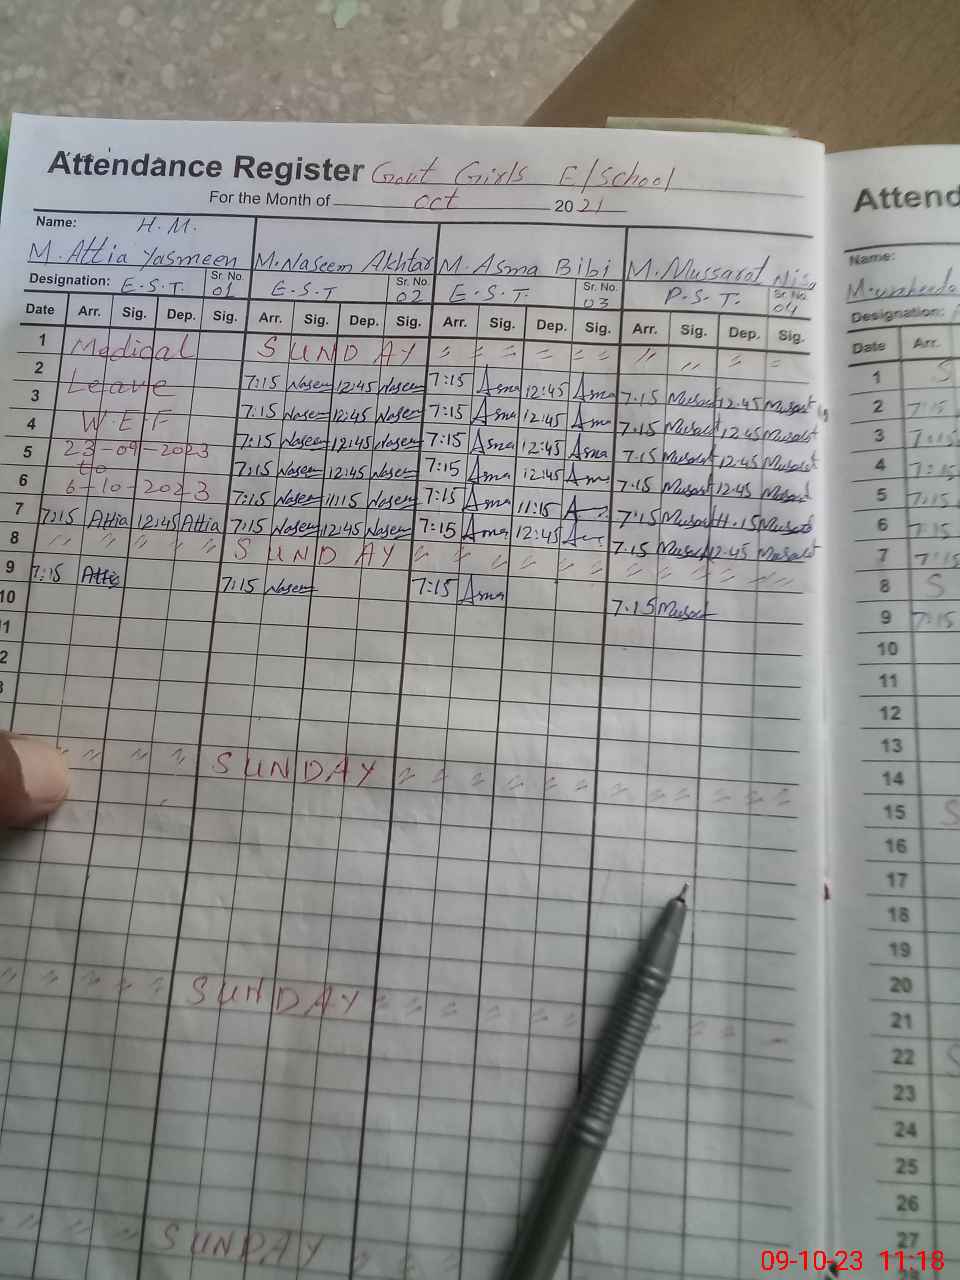 Attendance Register Govt Girls E/School
For the Month of Oct 2021
Name: H.M.
M. Attia Yasmeen M. Naseem Akhtar M. Asma Bibi M. Mussarat Nisa
Designation: E.S.T. Sr. No. 01 E.S.T Sr. No. 02 E.S.T. Sr. No. 03 P.S.T. Sr. No. 04
Date Arr. Sig. Dep. Sig. Arr. Sig. Dep. Sig. Arr. Sig. Dep. Sig. Arr. Sig. Dep. Sig.
1 Medical SUNDAY " " " " " " " " "
2 Leave 7:15 Naseem 12:45 Naseem 7:15 Asma 12:45 Asma 7:15 Musarat 12:45 Musarat
3 7:15 Naseem 12:45 Naseem 7:15 Asma 12:45 Asma 7:15 Musarat 12:45 Musarat
4 W.E.F 7:15 Naseem 12:45 Naseem 7:15 Asma 12:45 Asma 7:15 Musarat 12:45 Musarat
5 23-09-2023 7:15 Naseem 12:45 Naseem 7:15 Asma 12:45 Asma 7:15 Musarat 12:45 Musarat
6 to 7:15 Naseem 11:15 Naseem 7:15 Asma 11:15 7:15 Musarat 11:15 Musarat
6-10-2023
7 7:15 Attia 12:45 Attia 7:15 Naseem 12:45 Naseem 7:15 Asma 12:45 Asma 7:15 Musarat 12:45 Musarat
8 " " " " " SUNDAY " " " " " " " "
9 7:15 Attia 7:15 Naseem 7:15 Asma 7:15 Musarat
10
11
12
13
" " " " SUNDAY " " " " " " " " "
" " " " " SUNDAY " " " " " " " "
" " " SUNDAY " "
Attend
Name:
Designation:
Date Arr.
1 S
2 7:15
3 7:15
4 7:15
5 7:15
6 7:15
7 7:15
8 S
9 7:15
10
11
12
13
14
15 S
16
17
18
19
20
21
22 S
23
24
25
26
27
09-10-23 11:18